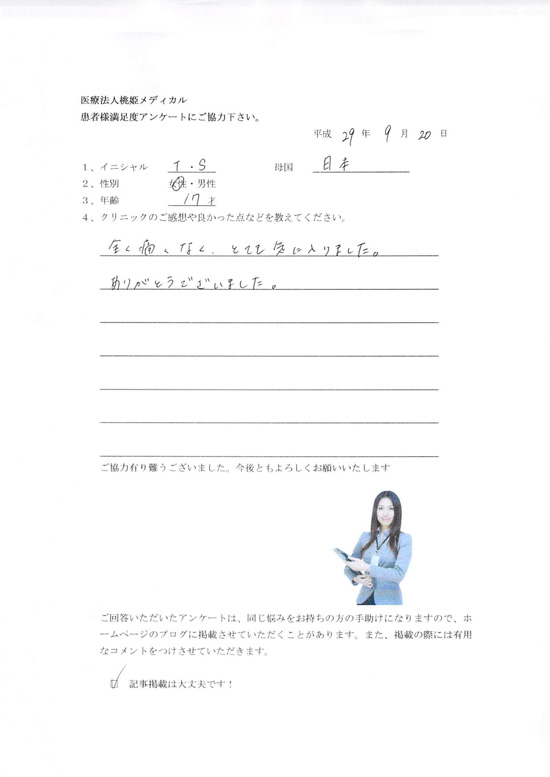 医療法人桃姫メディカル
患者様満足度アンケートにご協力下さい。
平成 29 年 9 月 20 日
1、イニシャル T・S 母国 日本
2、性別 女性・男性
3、年齢 17才
4、クリニックのご感想や良かった点などを教えてください。
全く痛くなく、とても気に入りました。
ありがとうございました。
ご協力有り難うございました。今後ともよろしくお願いいたします
ご回答いただいたアンケートは、同じ悩みをお持ちの方の手助けになりますので、ホ
ームページのブログに掲載させていただくことがあります。また、掲載の際には有用
なコメントをつけさせていただきます。
記事掲載は大丈夫です！